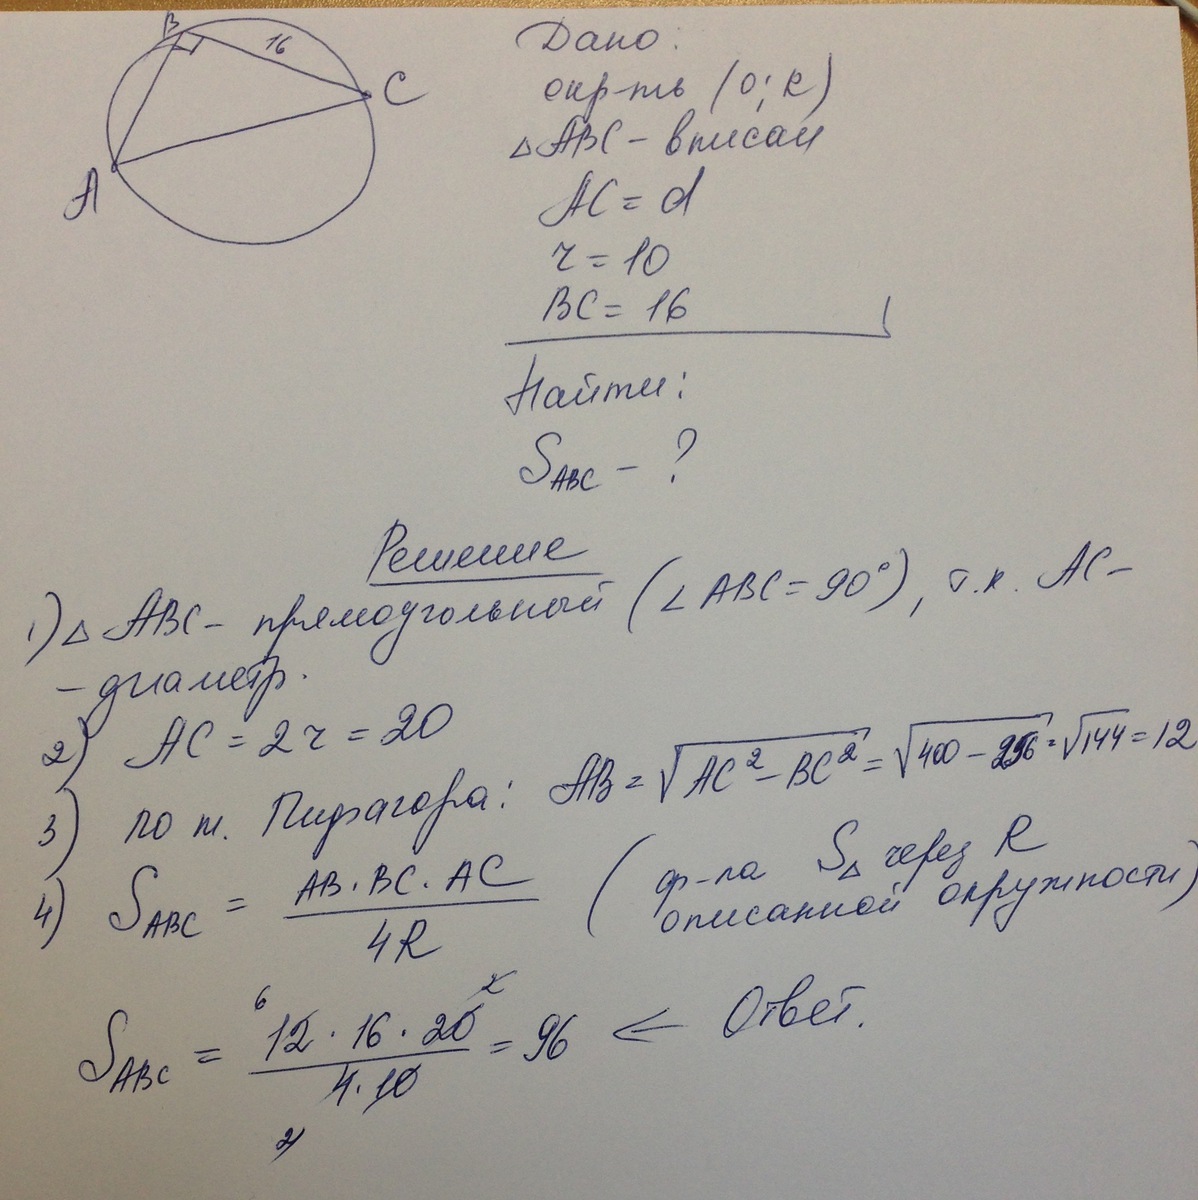 B
16
C
A
Дано:
окр-ть (O; R)
△ABC - вписан
AC = d
r = 10
BC = 16
Найти:
S_ABC - ?
Решение
1) △ ABC - прямоугольный (∠ABC = 90°), т.к. AC -
- диаметр.
2) AC = 2r = 20
3) по т. Пифагора: AB = √(AC² - BC²) = √(400 - 256) = √144 = 12
4) S_ABC = (AB · BC · AC) / 4R (ф-ла S△ через R
описанной окружности)
6 2
S_ABC = (12 · 16 · 20) / (4 · 10) = 96 ← Ответ.
2